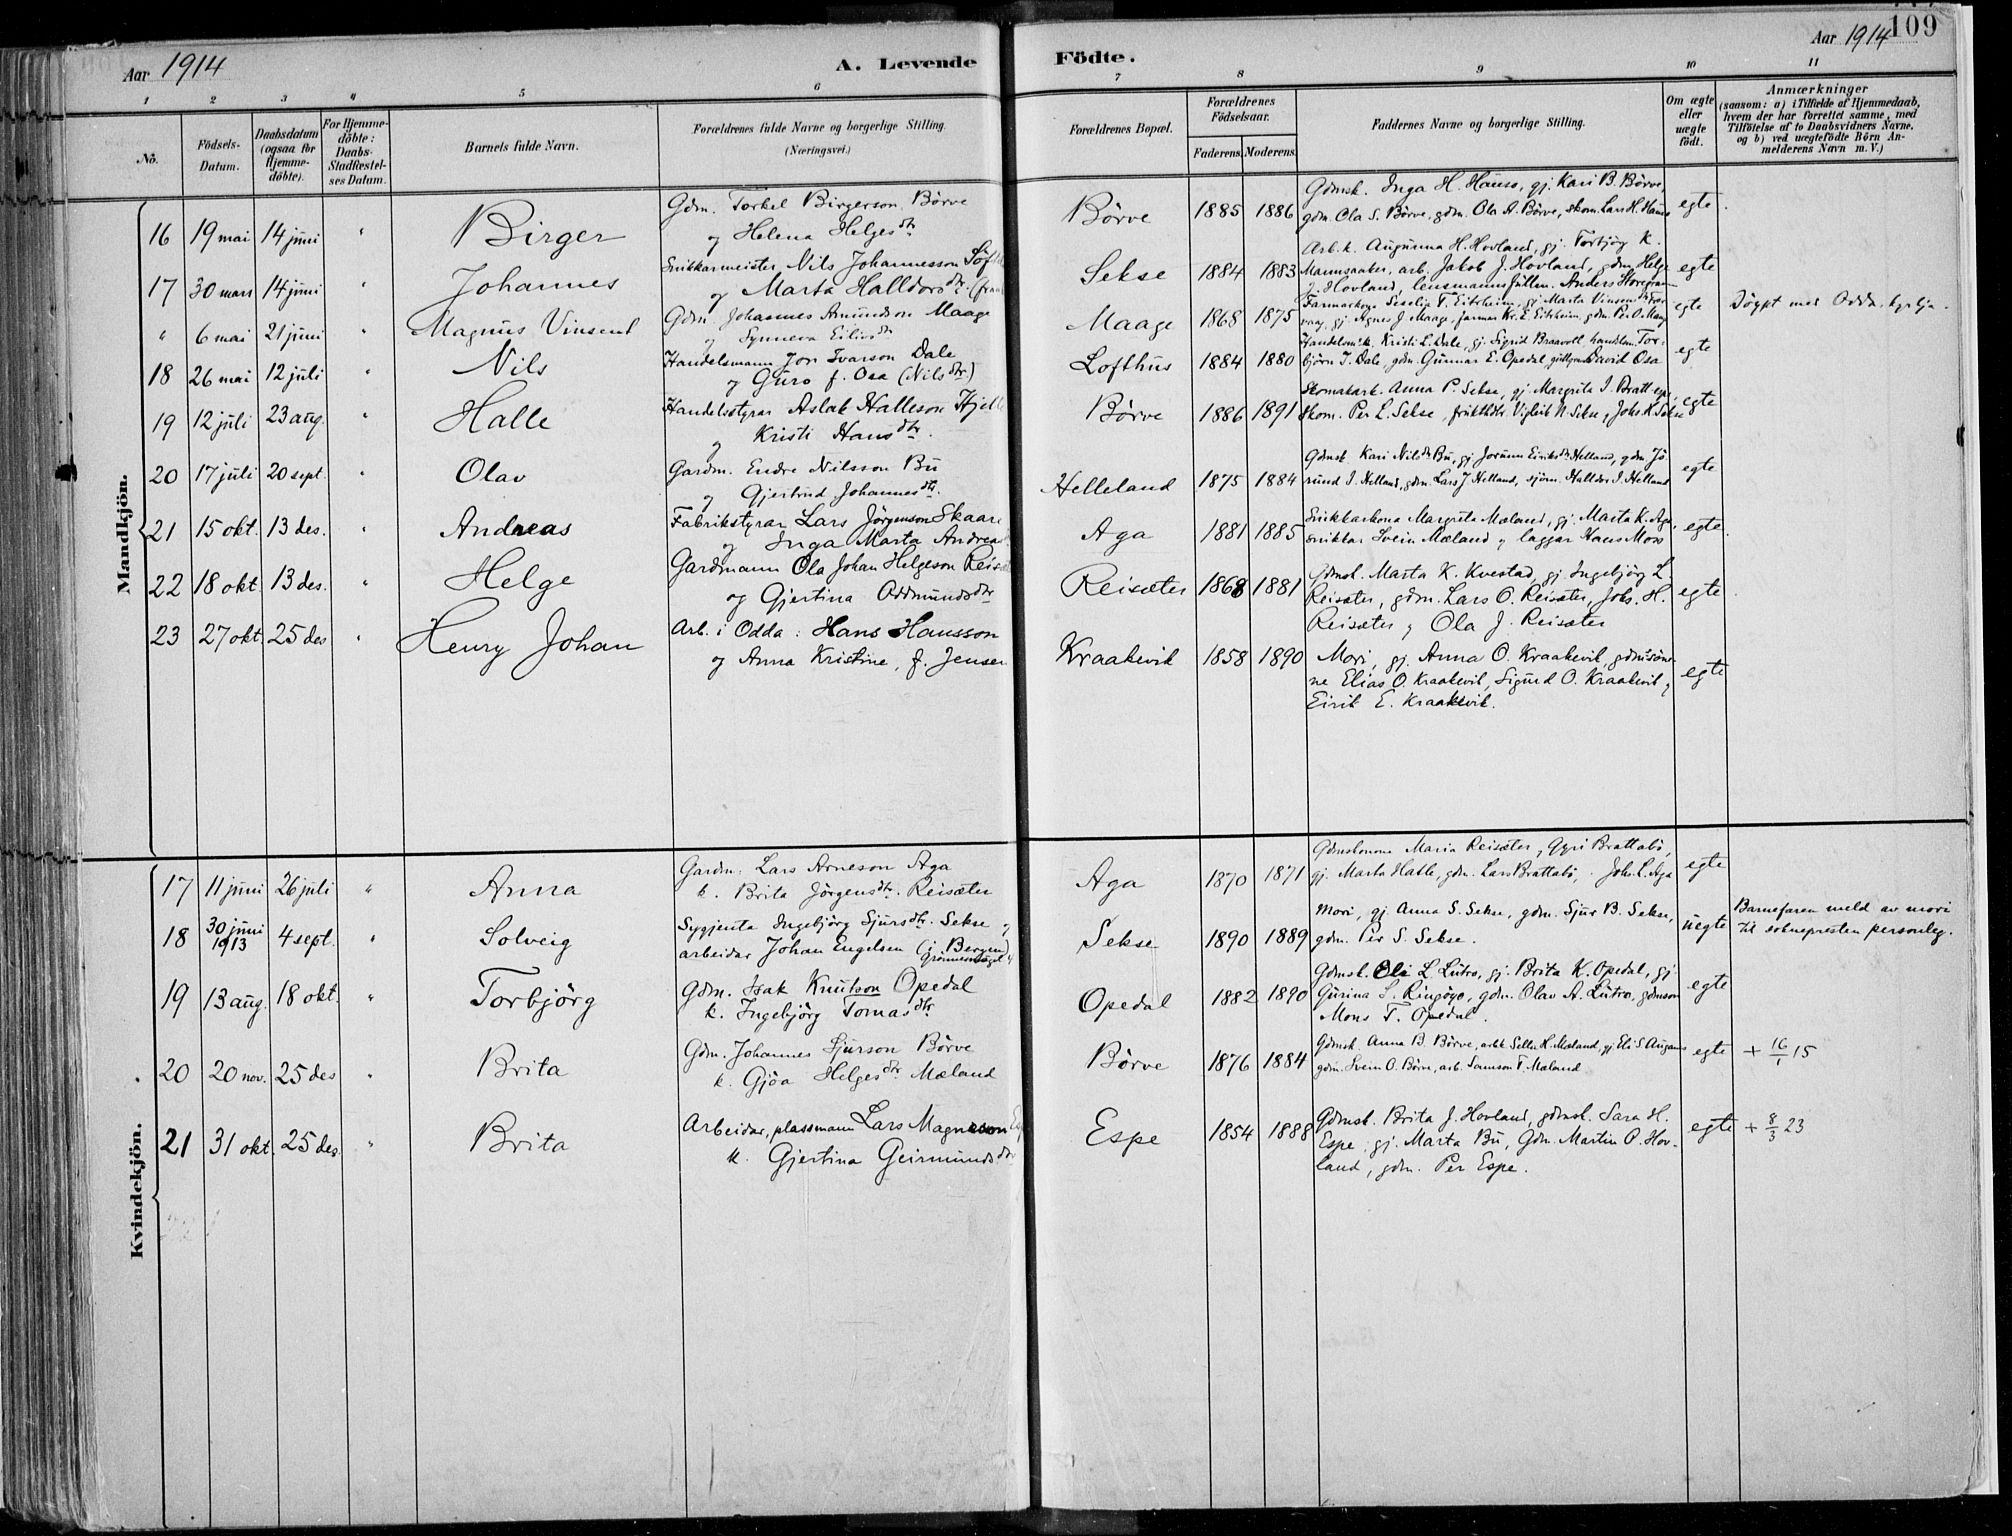 109
Aar 1914
A. Levende
Födte.
Aar 1914
1 2 3 4 5 6 7 8 9 10 11
No.
Födsels-Datum.
Daabsdatum (ogsaa for Hjemme-döbte).
For Hjemme-döbte: Daabs-Stadfæstel-ses Datum.
Barnets fulde Navn.
Forældrenes fulde Navne og borgerlige Stilling.
(Næringsvei.)
Forældrenes Bopæl.
Forældrenes Födselsaar.
Faderens. Moderens.
Faddernes Navne og borgerlige Stilling.
Om ægte eller uægte födt.
Anmærkninger
(saasom: a) i Tilfælde af Hjemmedaab,
hvem der har forrettet samme, med
Tilföielse af to Daabsvidners Navne,
og b) ved uægtefödte Börn An-
melderens Navn m. V.)
Mandkjön.
16 19 mai 14 juni " Birger
Gdm. Torkel Birgerson Börve
og Helena Helgesdtr
Börve 1885 1886
Gdmsk. Inga H. Hauso, gj. Kari B. Börve,
gdm. Ola S. Börve, gdm. Ola A. Börve, skom. Lars H. Hauso
egte
17 30 mars 14 juni " Johannes
Snikkarmeister Nils Johannesson
og Marta Halldorsdtr
Sekse 1884 1883
Arb.k. Augunna H. Hovland, gj. Torbjög K.
Mannsaaker, arb. Jakob J. Hovland, gdm. Helge
J. Hovland, lensmannsfullm. Anders
egte
" 6 mai 21 juni Magnus Vinsent
Gdm. Johannes Amundson Maage
og Synneva Eilivsdtr
Maage 1868 1875
gj. Agnes J. Maage, farmar Kr. E. Eitrheim, gdm. Per O. Maage
egte
Döypt med Odda kyrkja.
18 26 mai 12 juli " Nils
Handelsmann Jon Ivarson Dale
og Guro f. Osa (Nilsdtr)
Lofthus 1884 1880
Handelsm.k. Kristi L. Dale, gj. Sigrid Braavoll, handelsm. Tor-
björn I. Dale, gdm. Gunnar E. Opedal, David Osa
egte
19 12 juli 23 aug. " Halle
Handelsstyrar Aslak Halleson
og Kristi Hansdtr.
Börve 1886 1891
Skomakark. Anna P. Sekse, gj. Margrita I.
skom. Per L. Sekse, Vigleik N. Sekse, Johs. K. Sekse
egte
20 17 juli 20 sept. " Olav
Gardm. Endre Nilsson Bu
og Gjertrud Johannesdtr.
Helleland 1875 1884
Gdmsk Kari Nilsdtr Bu, gj Jorunn Eiriksdtr Helland, gdm Jö-
rund I. Helland, gdm. Lars J Helland, sjöm. Halldor I. Helland
egte
21 15 okt. 13 des. " Andreas
Fabrikstyrar Lars Jörgenson Skaare
og Inga Marta Andrea
Aga 1881 1885
Snikkarkona Margrita Mæland, gj. Marta K. Aga,
snikkar Svein Mæland og laggar Hans Moss
egte
22 18 okt 13 des. " Helge
Gardmann Ola Johan Helgeson
og Gjertina Oddmundsdtr
Reisæter 1868 1881
Gdmsk. Marta K. Kvestad, gj Ingebjörg L
Reisæter, gdm. Lars O. Reisæter, Johs. H.
Reisæter og Ola J. Reisæter
egte
23 27 okt. 25 des " Henry Johan
Arb. i Odda: Hans Hansson
og Anna Kristine, f. Jensen
Kraakevik 1858 1890
Mori, gj. Anna O. Kraakevik, gdmssöne-
ne Elias O. Kraakevik, Sigurd O. Kraakevik og
Eirik E. Kraakevik.
egte
Kvindekjön.
17 11 juni 26 juli " Anna
Gardm. Lars Arneson Aga
k. Brita Jörgensdtr. Reisæter
Aga 1870 1871
Gdmskonone Maria Reisæter, Gyri Brattabö,
gj. Marta Hatle, gdm. Lars Brattabö, Joh. L. Aga
egte
18 30 juni 1913 4 sept. " Solveig
Sygjenta Ingebjörg Sjursdtr. Sekse og
arbeidar Johan Engelsen (i Bergen)
Sekse 1890 1889
Mori, gj. Anna S. Sekse, gdm. Sjur B. Sekse,
gdm. Per S. Sekse.
uegte
Barnefaren meld av mori
til soknepresten personleg.
19 13 aug. 18 okt. " Torbjörg
Gdm. Isak Knutson Opedal
k. Ingebjörg Tomasdtr
Opedal 1882 1890
Gdmsk. Oli L. Lutro, gj. Brita K. Opedal, gj
Gurina S. Ringöyo, gdm. Olav A. Lutro, gdmson
Mons T. Opedal.
egte
20 20 nov. 25 des " Brita
Gdm. Johannes Sjurson Börve
k. Gjöa Helgesdtr Mæland
Börve 1876 1884
Gdmsk Anna B. Börve, arbk Selle H. Mæland, gj. Eli S
gdm. Svein O. Börve, arb. Samson T. Mæland
egte + 16/1 15
21 31 okt. 25 des. " Brita
Arbeidar, plassmann Lars Magneson
k. Gjertina Geirmundsdtr
Espe 1854 1888
Gdmsk. Brita J. Hovland, gdmsk. Sara H.
Espe, gj. Marta Bu, Gdm. Martin O. Hov-
land, gdm. Per Espe.
egte + 8/3 23